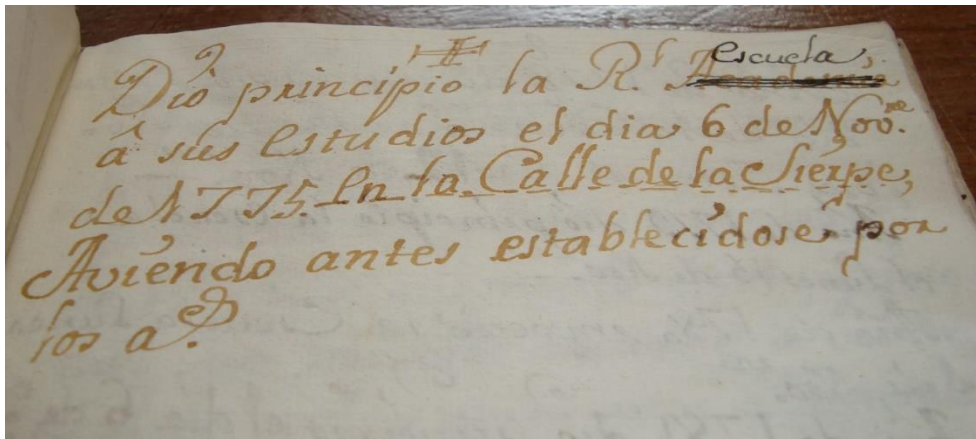 Dió principio la R.l escuela,
á sus estudios el dia 6 de Nov.re
de 1775. en la Calle de la Sierpe,
Aviendo antes establecidose por
los a.s